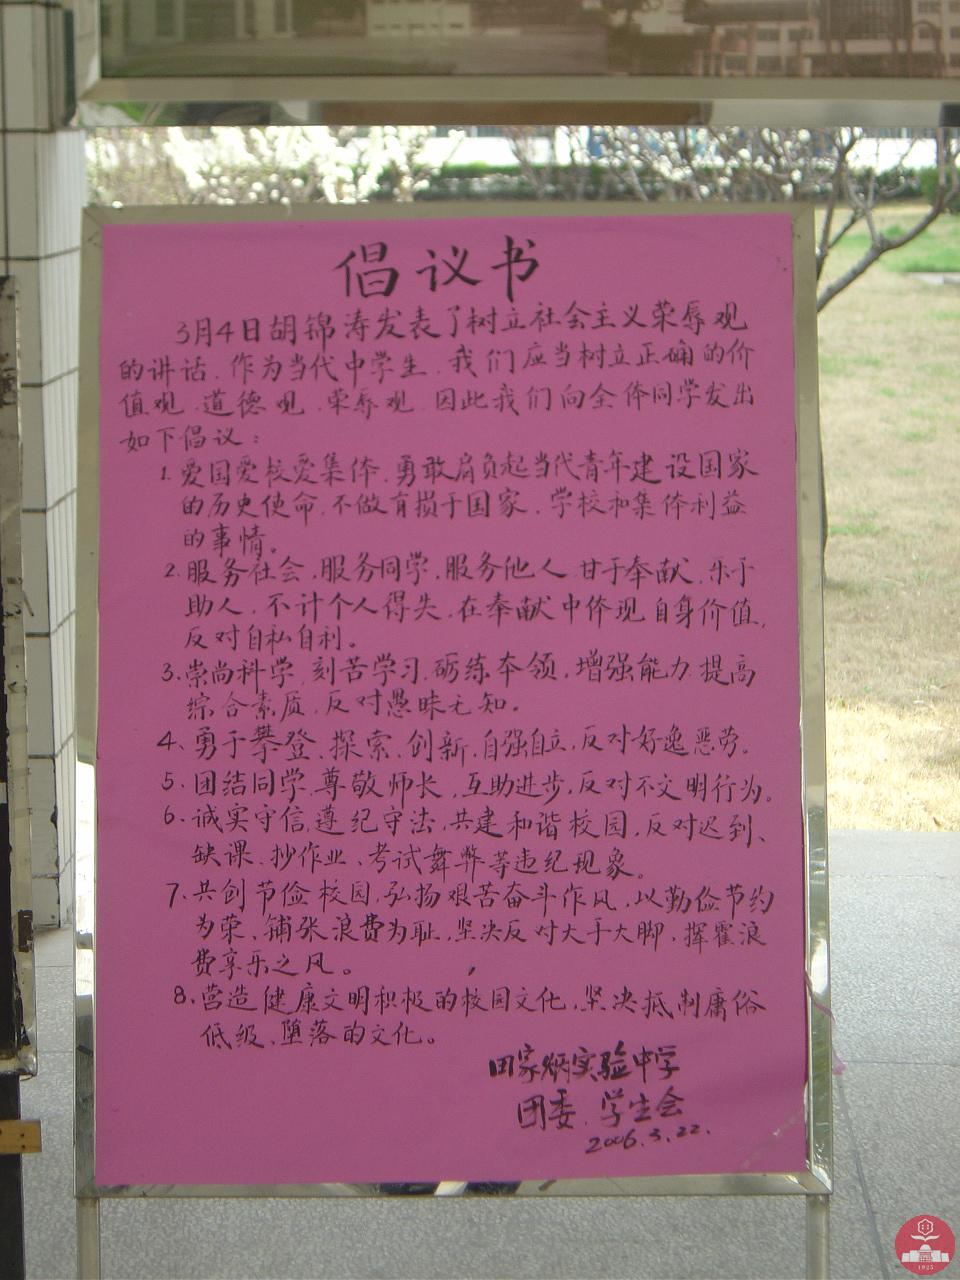 倡议书
3月4日胡锦涛发表了树立社会主义荣辱观
的讲话.作为当代中学生.我们应当树立正确的价
值观.道德观.荣辱观.因此我们向全体同学发出
如下倡议：
1.爱国爱校爱集体.勇敢肩负起当代青年建设国家
的历史使命,不做有损于国家.学校和集体利益
的事情。
2.服务社会.服务同学.服务他人.甘于奉献.乐于
助人.不计个人得失.在奉献中体现自身价值,
反对自私自利。
3.崇尚科学.刻苦学习.砺练本领.增强能力.提高
综合素质.反对愚昧无知。
4、勇于攀登、探索、创新.自强自立.反对好逸恶劳。
5.团结同学.尊敬师长,互助进步,反对不文明行为。
6.诚实守信,遵纪守法.共建和谐校园,反对迟到、
缺课.抄作业、考试舞弊等违纪现象。
7.共创节俭校园.弘扬艰苦奋斗作风,以勤俭节约
为荣、铺张浪费为耻.坚决反对大手大脚,挥霍浪
费享乐之风。
8.营造健康文明积极的校园文化.坚决抵制庸俗
低级、堕落的文化。
田家炳实验中学
团委.学生会
2006.3.22.
1925